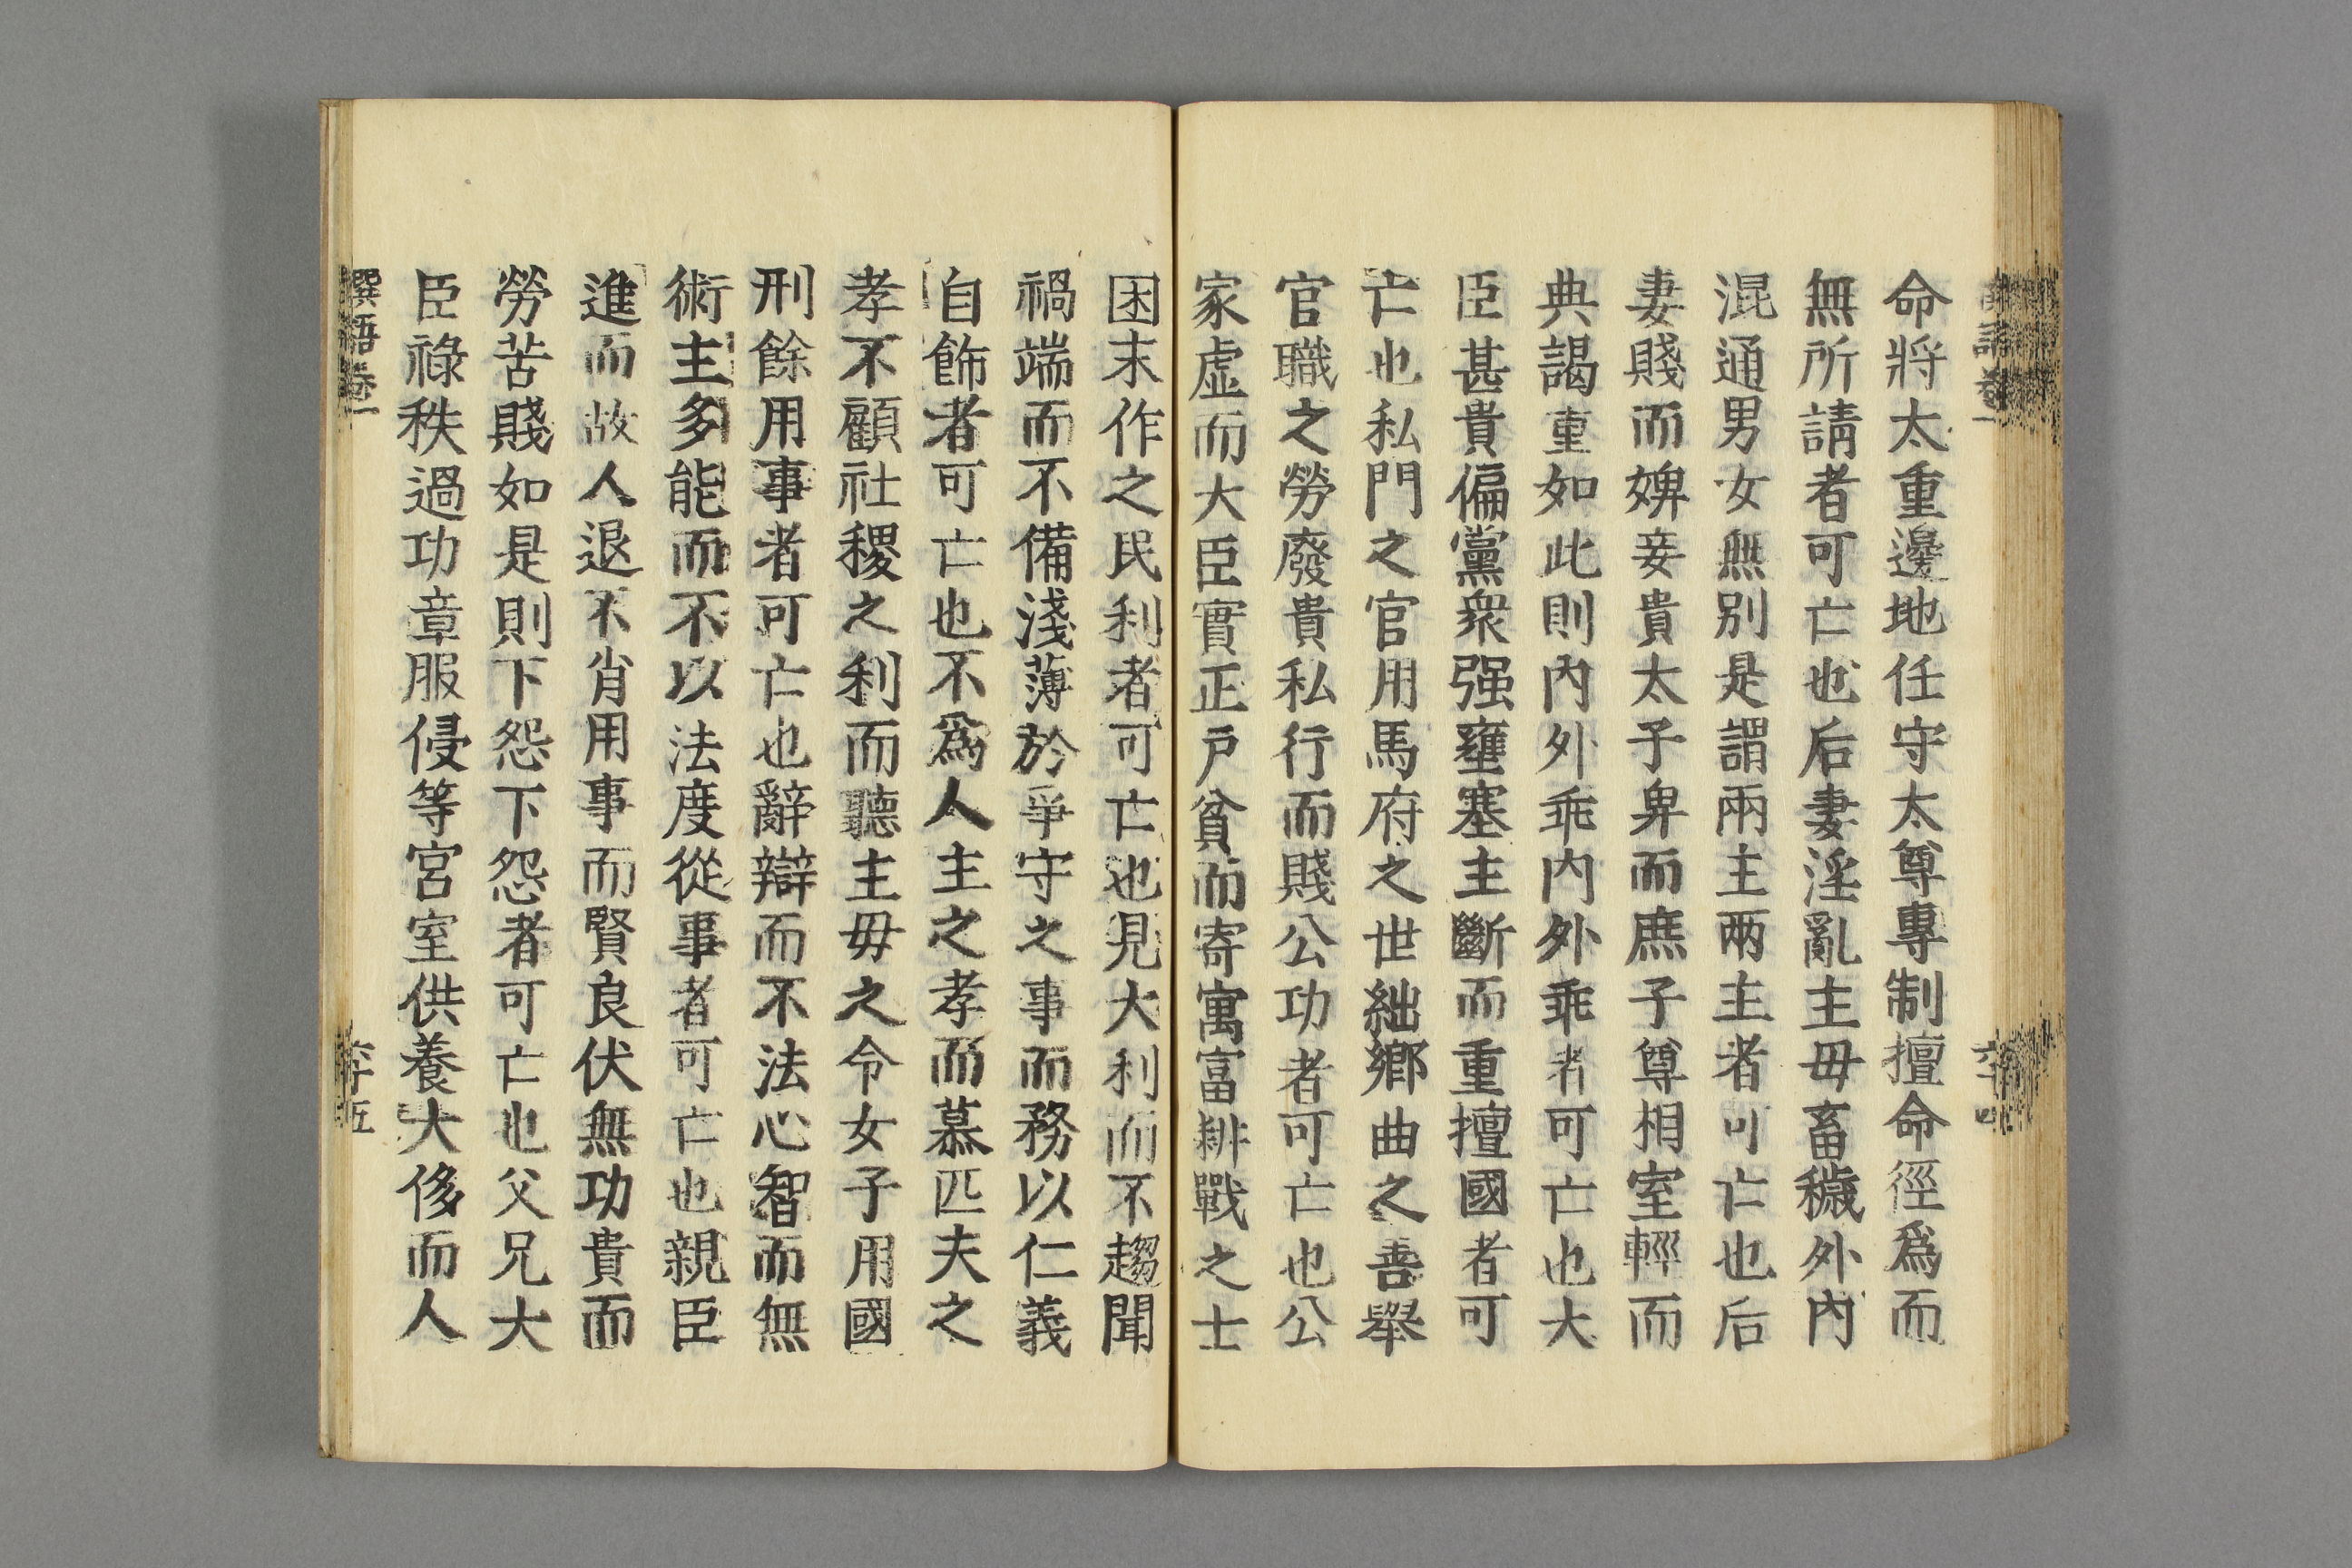 命將太重邊地任守太尊專制擅命徑爲而
無所請者可亡也后妻淫亂主毋畜穢外内
混通男女無别是謂兩主兩主者可亡也后
妻賤而婢妾貴太子卑而庶子尊相室輕而
典謁重如此則内外乖内外乖者可亡也大
臣甚貴偏黨衆强壅塞主斷而重擅國者可
亡也私門之官用馬府之世絀鄉曲之善舉
官職之勞廢貴私行而賤公功者可亡也公
家虛而大臣實正戶貧而寄寓富耕戰之士
困末作之民利者可亡也見大利而不趨聞
禍端而不備淺薄於爭守之事而務以仁義
自飾者可亡也不爲人主之孝而慕匹夫之
孝不顧社稷之利而聽主毋之令女子用國
刑餘用事者可亡也辭辯而不法心智而無
術主多能而不以法度從事者可亡也親臣
進而故人退不肖用事而賢良伏無功貴而
勞苦賤如是則下怨下怨者可亡也父兄大
臣祿秩過功章服侵等宮室供養大侈而人
卷一
六十五